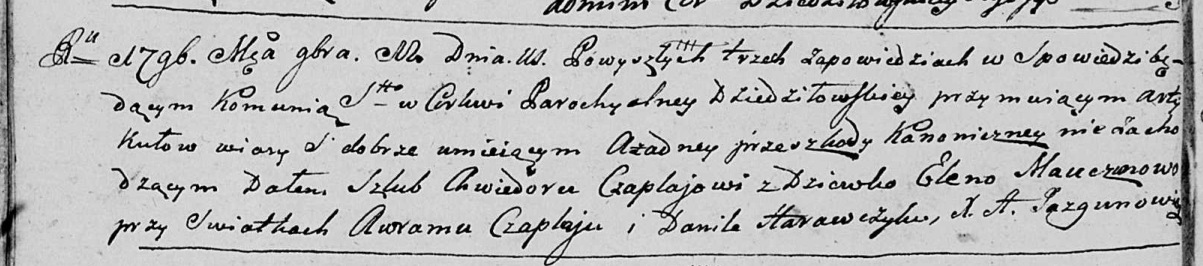 Ru 1796. Mca 9bra. Dnia. Powyszłych trzech zapowiedziach w Spowiedzi bę-
dącym Komunią Sto w Cerkwi Parochyalney Dziedziłowskiey przymuiącym arty
kułow wiary S dobrze umieiącym Ażadney przeszkody Kanoniczney nie zacho
dzącym Dałem Szlub Chwiedoru Czaplajowi z Dziewko Eleno
przy Swiatkach Awramu Czaplaju i Danile Harawczyku, X. A. Jazgunowi